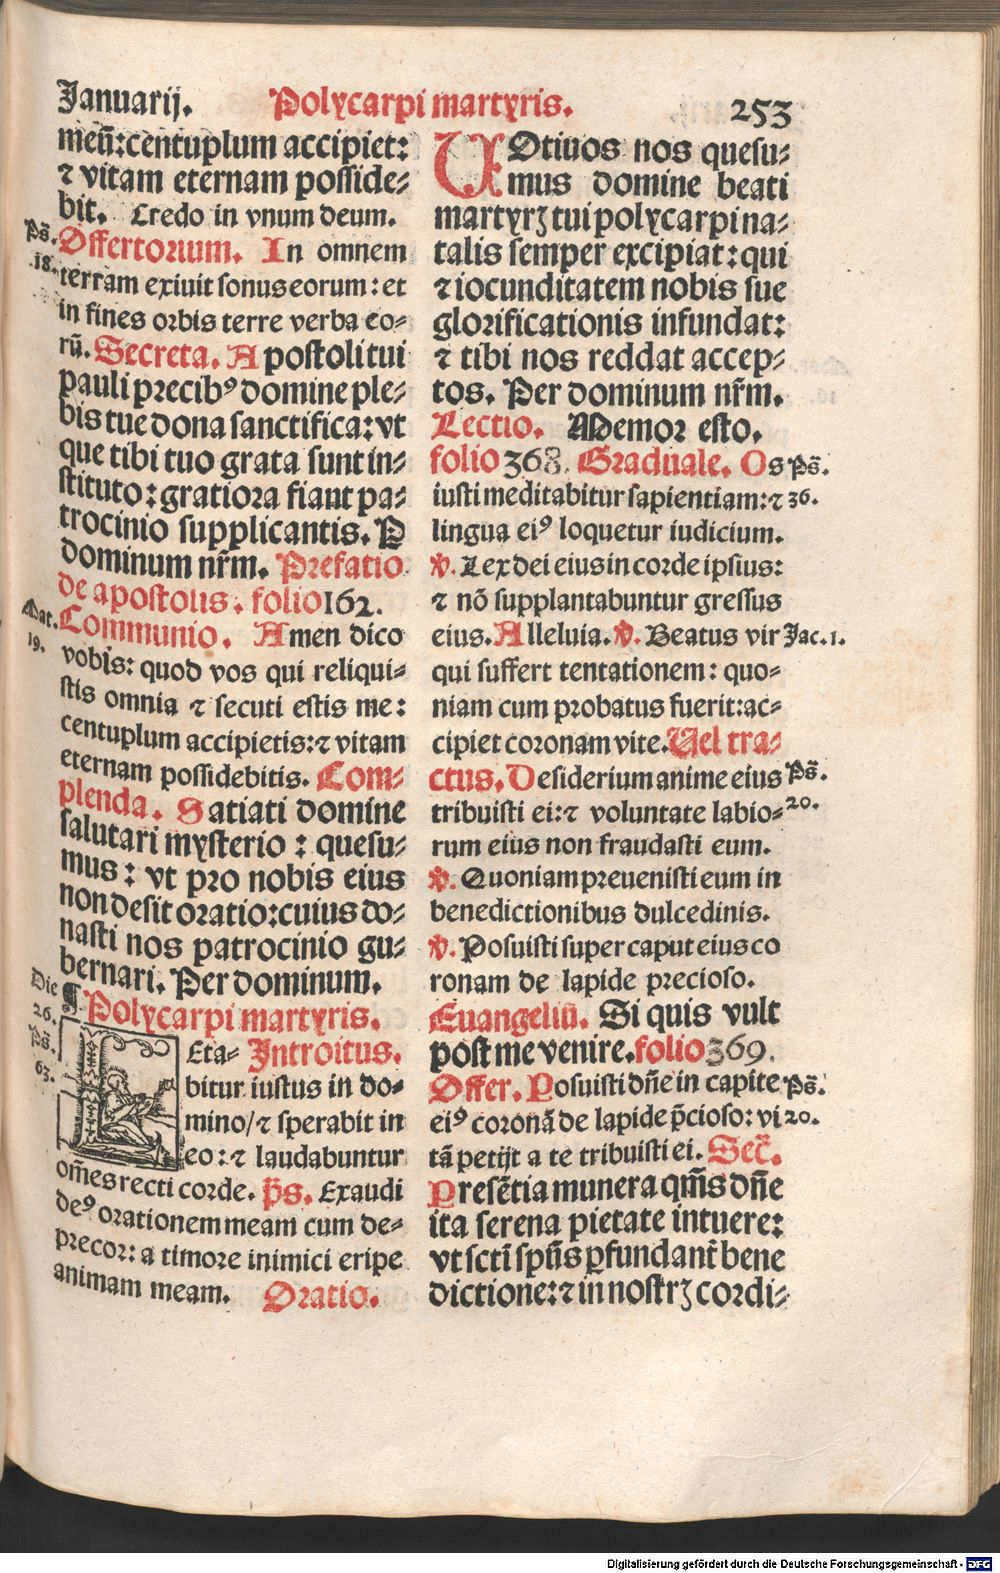 Januarij. Polycarpi martyris. 253
meū: centuplum accipiet:
⁊ vitam eternam posside⸗
bit. Credo in vnum deum.
Ps̄. 18.
Offertorium. In omnem
terram exiuit sonus eorum: et
in fines orbis terre verba eo⸗
rū. Secreta. Apostoli tui
pauli precibꝰ domine ple⸗
bis tue dona sanctifica: vt
que tibi tuo grata sunt in⸗
stituto: gratiora fiant pa⸗
trocinio supplicantis. P
dominum nr̄m. Prefatio
de apostolis. folio 162.
Mat. 19.
Communio. Amen dico
vobis: quod vos qui reliqui⸗
stis omnia ⁊ secuti estis me:
centuplum accipietis: ⁊ vitam
eternam possidebitis. Com⸗
plenda. Satiati domine
salutari mysterio: quesu⸗
mus: vt pro nobis eius
non desit oratio: cuius do⸗
nasti nos patrocinio gu⸗
bernari. Per dominum.
Die 26.
¶ Polycarpi martyris.
Ps̄. 63.
Leta⸗ Introitus.
bitur iustus in do⸗
mino/ ⁊ sperabit in
eo: ⁊ laudabuntur
om̄es recti corde. p̄s. Exaudi
deꝰ orationem meam cum de⸗
precor: a timore inimici eripe
animam meam. Oratio.
VOtiuos nos quesu⸗
mus domine beati
martyrꝫ tui polycarpi na⸗
talis semper excipiat: qui
⁊ iocunditatem nobis sue
glorificationis infundat:
⁊ tibi nos reddat accep⸗
tos. Per dominum nr̄m.
Lectio. Memor esto.
folio 368. Graduale. Os Ps̄.
iusti meditabitur sapientiam: ⁊ 36.
lingua eiꝰ loquetur iudicium.
℣. Lex dei eius in corde ipsius:
⁊ nō supplantabuntur gressus
eius. Alleluia. ℣. Beatus vir Jac. 1.
qui suffert tentationem: quo⸗
niam cum probatus fuerit: ac⸗
cipiet coronam vite. Vel tra⸗
ctus. Desiderium anime eius Ps̄.
tribuisti ei: ⁊ voluntate labio⸗ 20.
rum eius non fraudasti eum.
℣. Quoniam preuenisti eum in
benedictionibus dulcedinis.
℣. Posuisti super caput eius co
ronam de lapide precioso.
Euangeliū. Si quis vult
post me venire. folio 369.
Offer. Posuisti dn̄e in capite Ps̄.
eiꝰ coronā de lapide p̄cioso: vi 20.
tā petijt a te tribuisti ei. Sec̄.
Presētia munera qm̄s dn̄e
ita serena pietate intuere:
vt sctī spūs ꝑfundant̄ bene
dictione: ⁊ in nostrꝫ cordi⸗
Digitalisierung gefördert durch die Deutsche Forschungsgemeinschaft - DFG